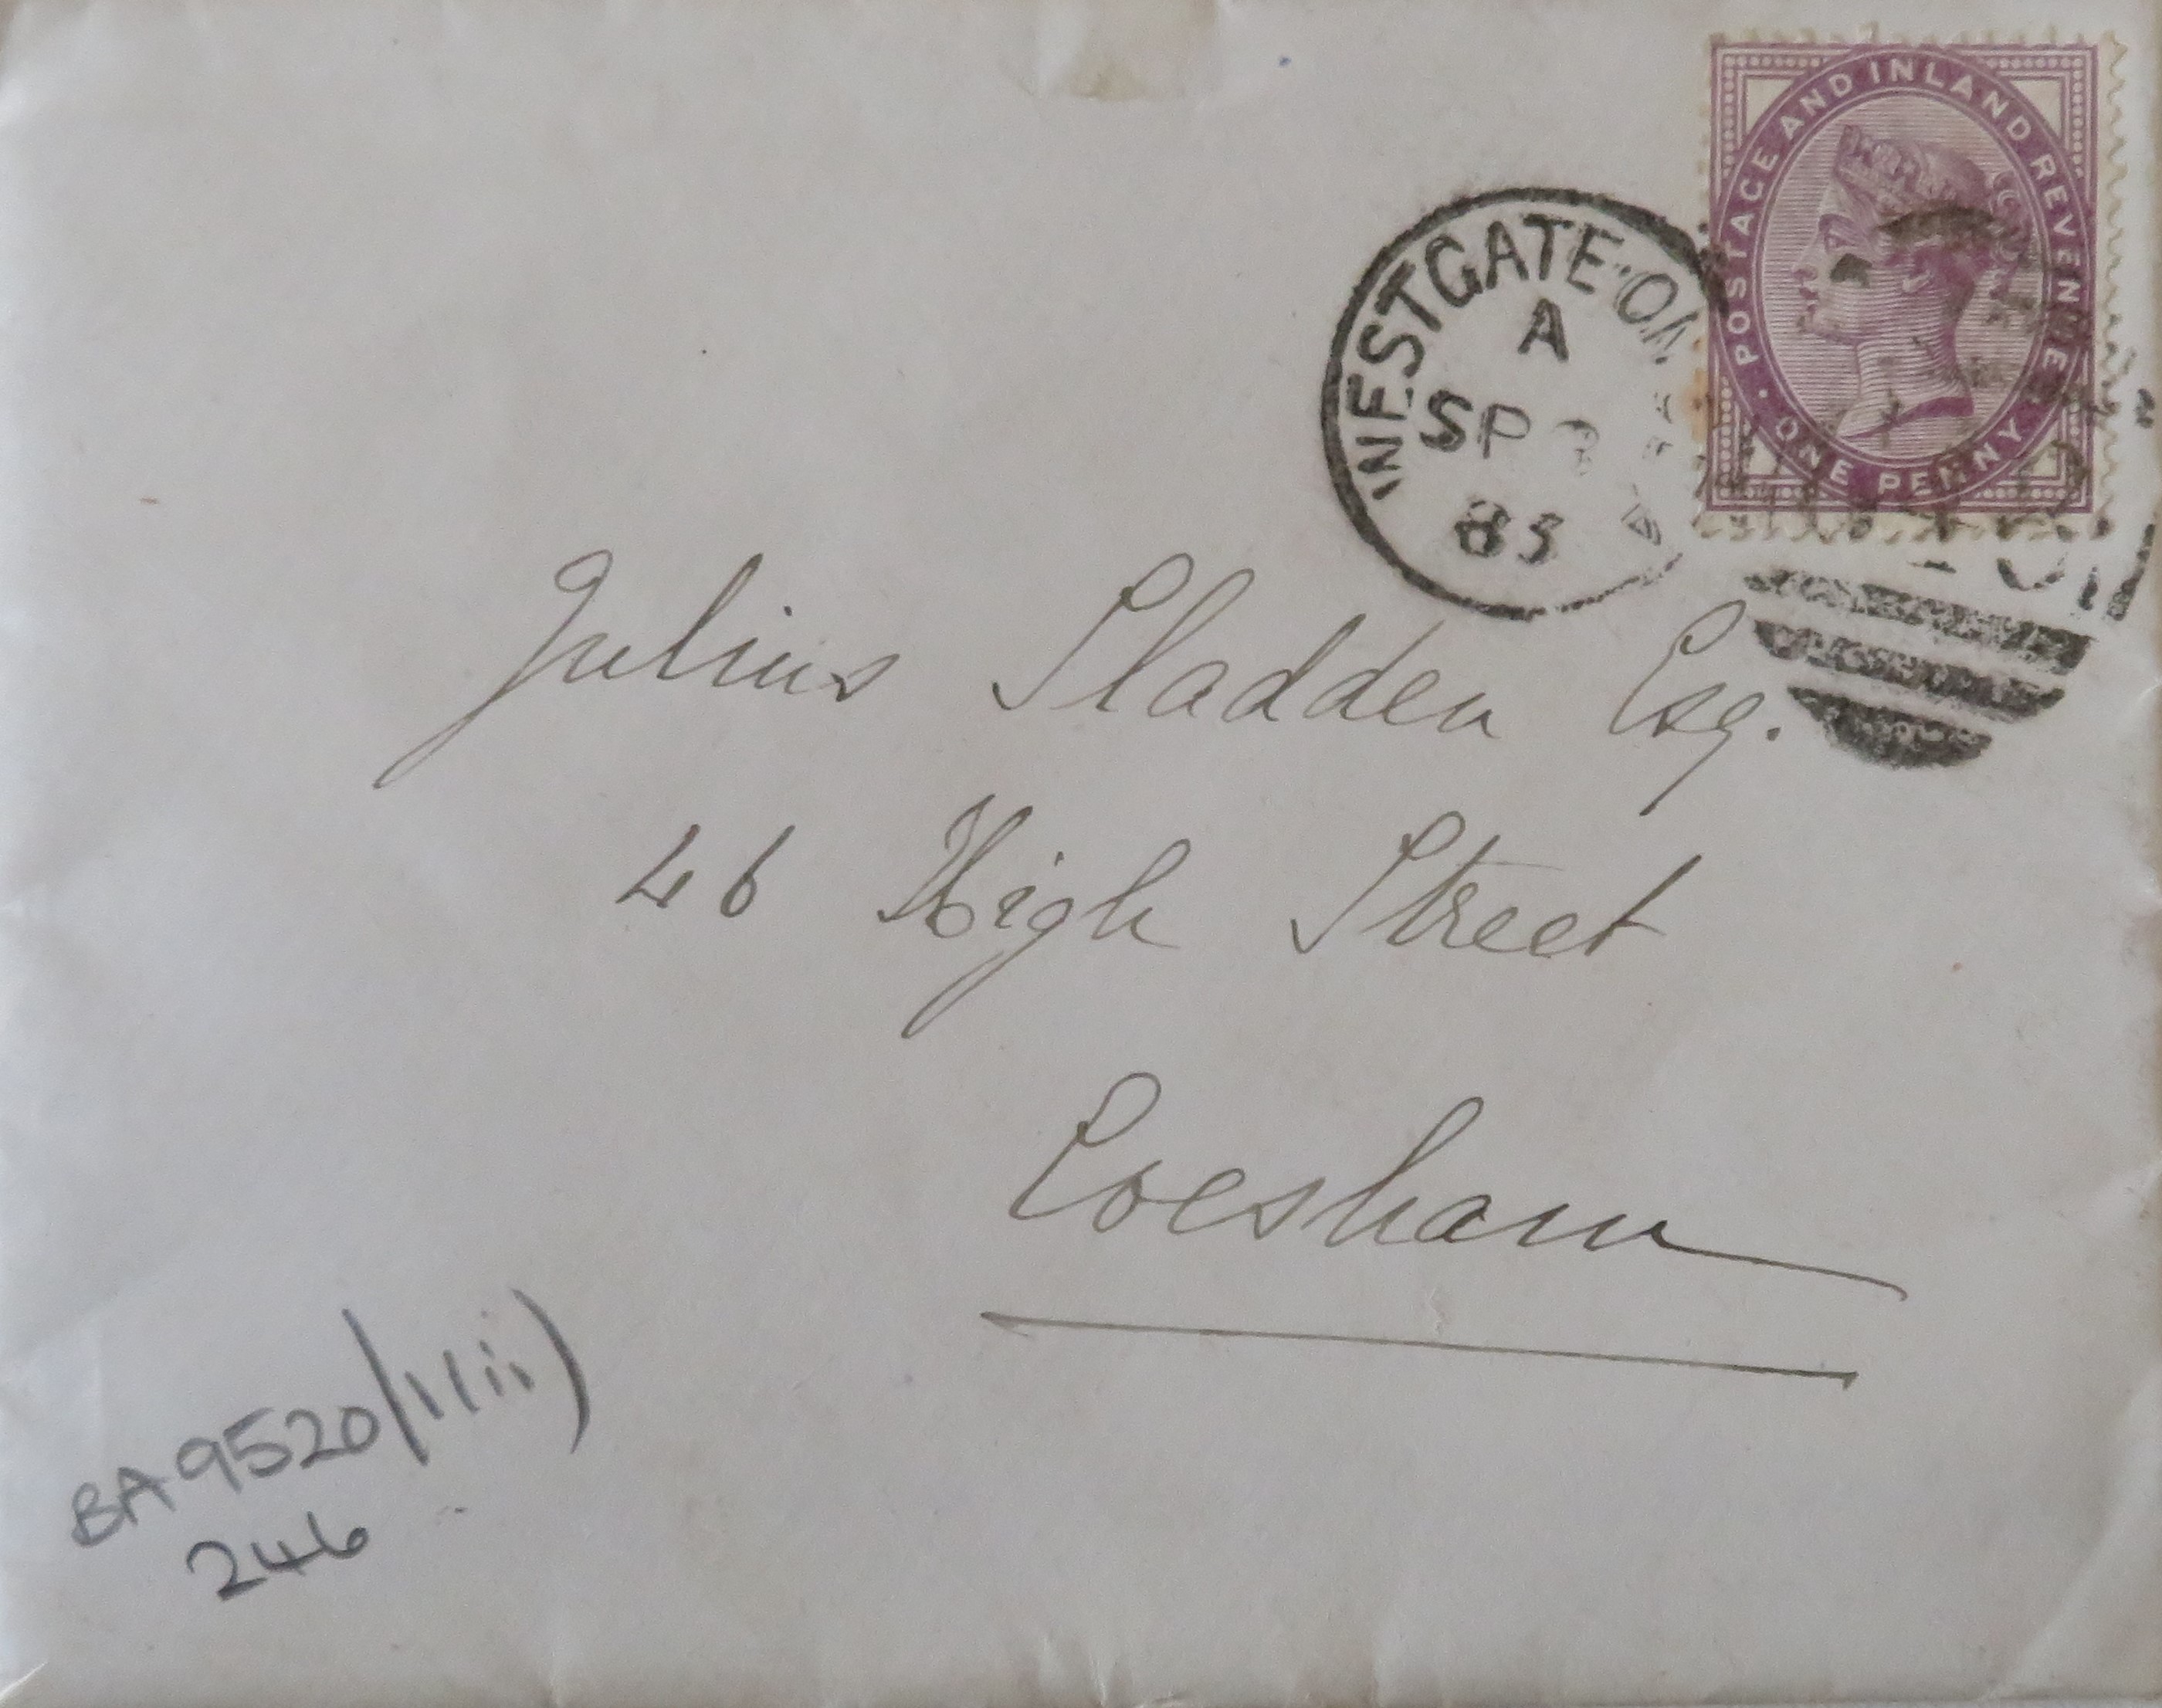 POSTAGE AND INLAND REVENUE
ONE PENNY
WESTGATE·ON
A
SP
85
Julius Sladden Esq.
46 High Street
Evesham
BA9520/11iii)
246